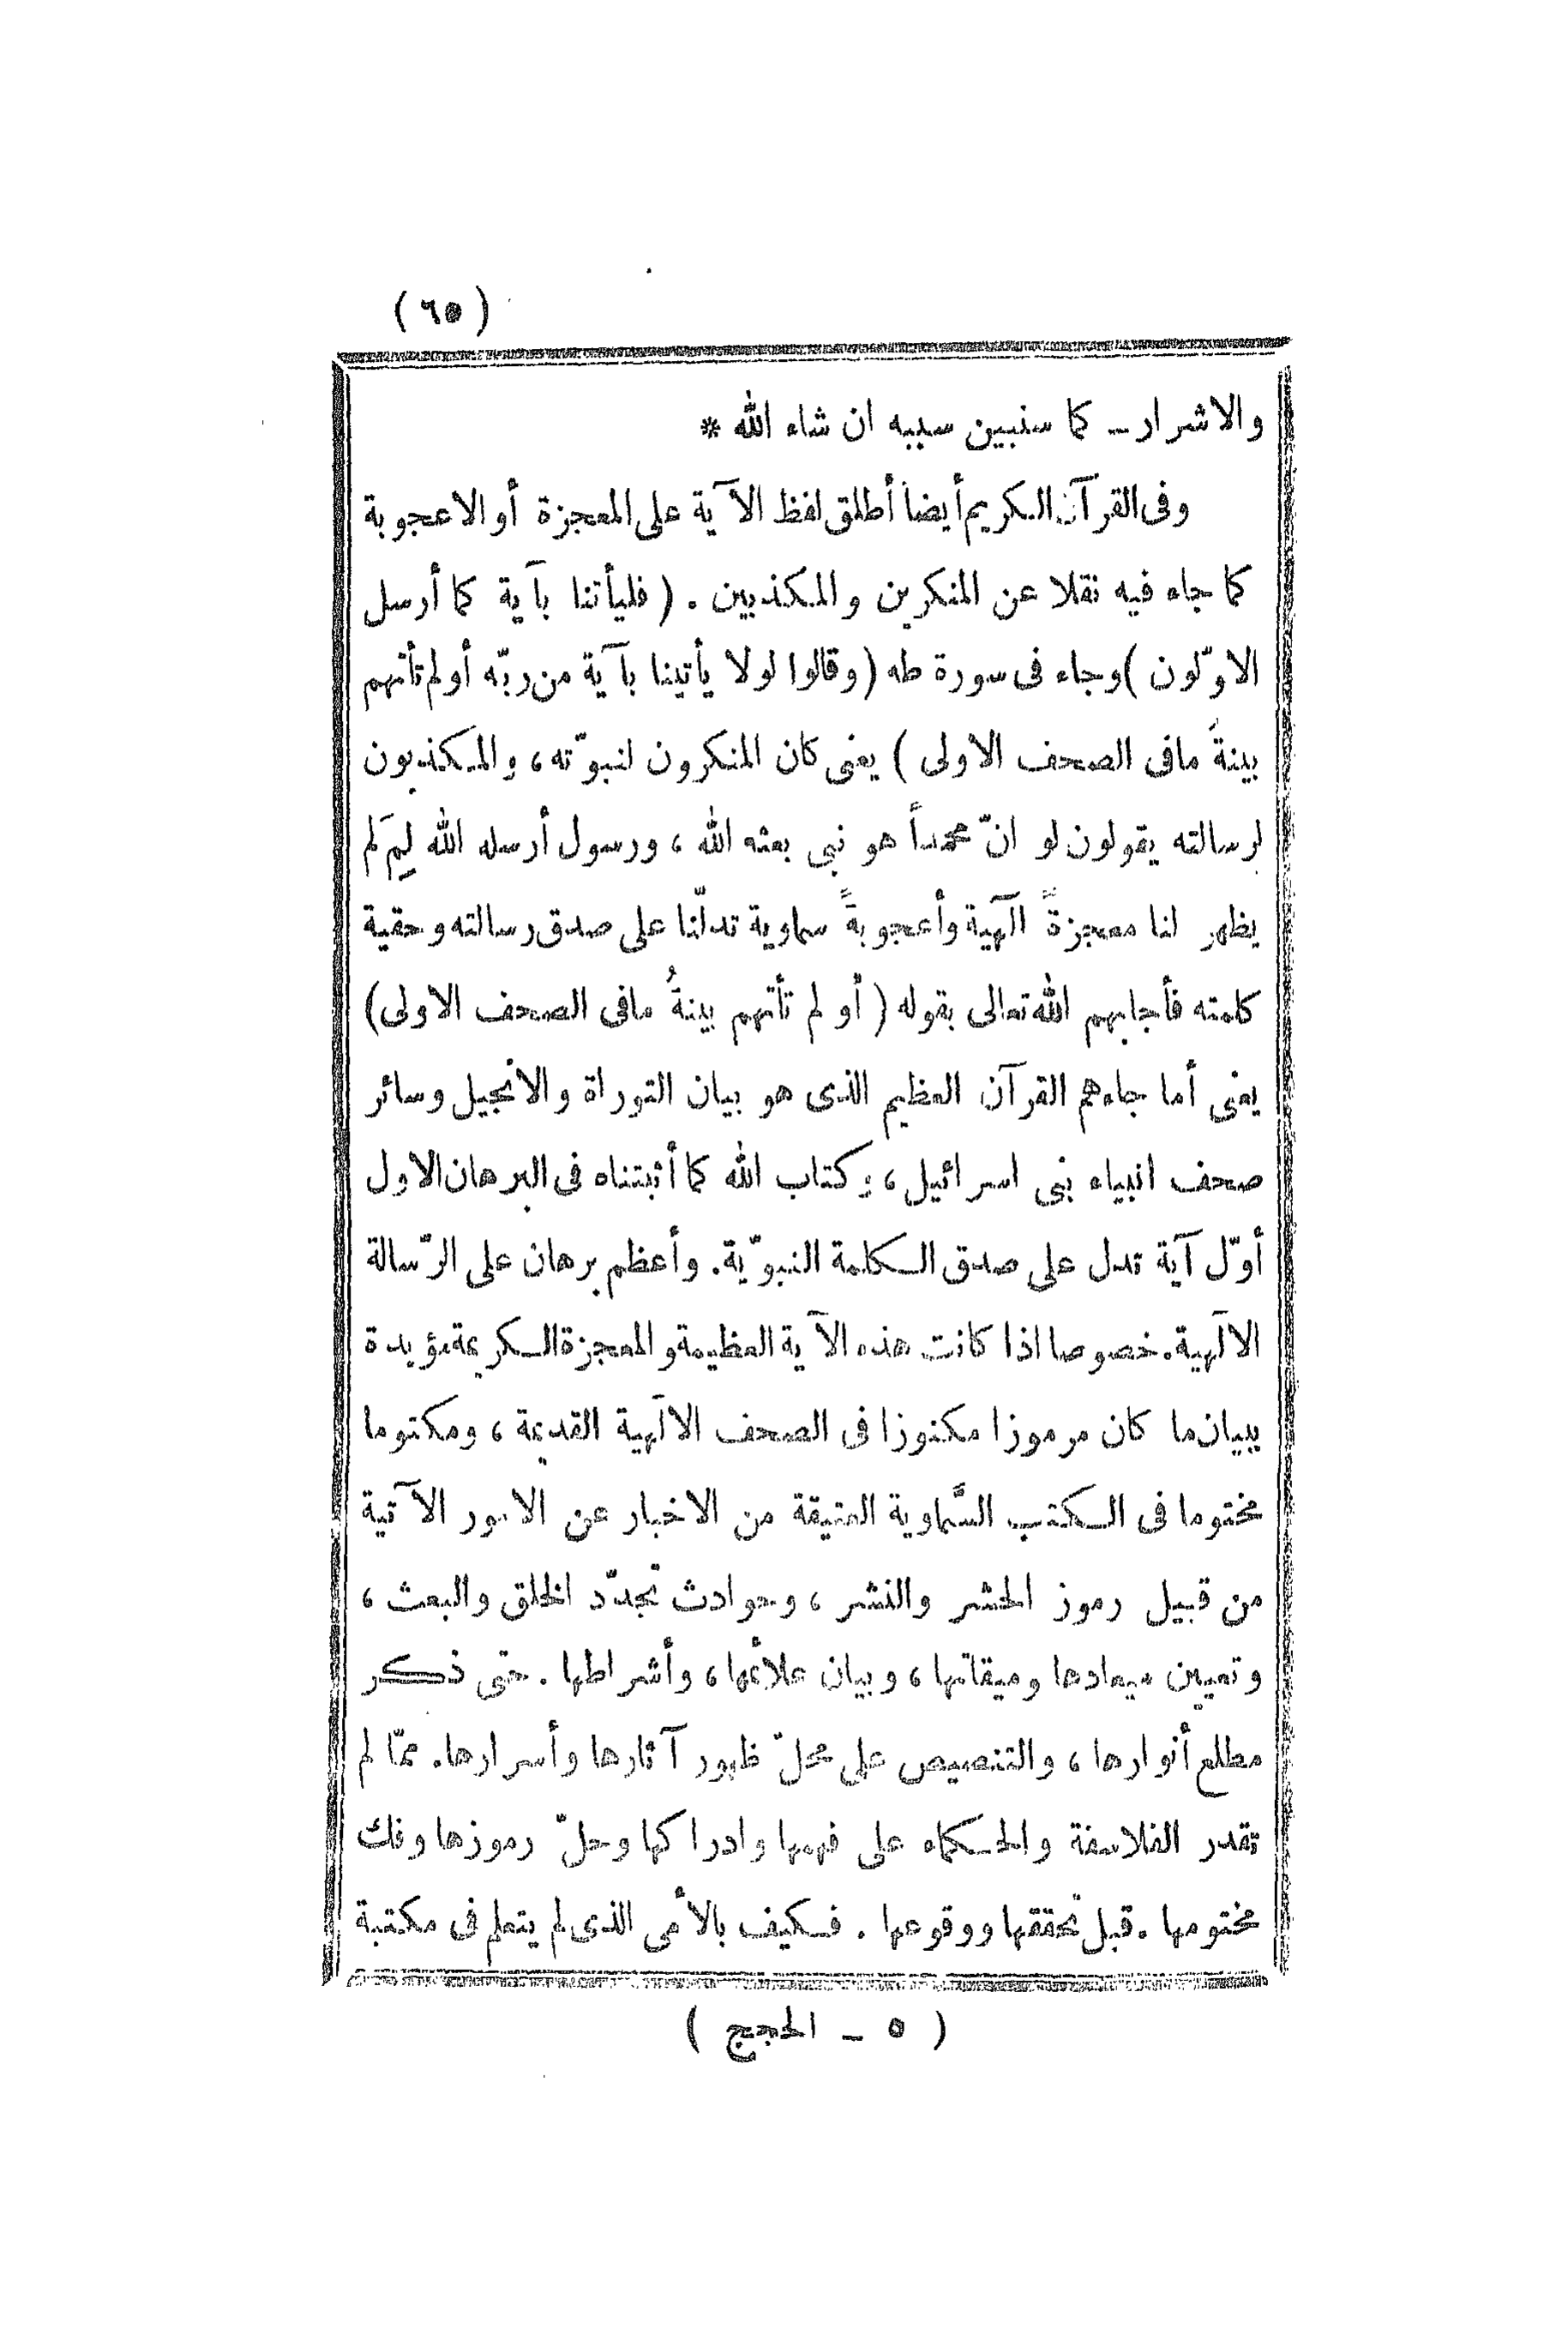 ( ٦٥ )
والاشرار ــ كما سنبين سببه ان شاء الله *
وفى القرآن الكريم أيضاً أطلق لفظ الآية على المعجزة أو الاعجوبة
كما جاء فيه نقلا عن المنكرين والمكذبين . ( فليأتنا بآية كما أرسل
الاوّلون ) وجاء فى سورة طه ( وقالوا لولا يأتينا بآية من ربّه أولم تأتهم
بينةَ مافى الصحف الاولى ) يعنى كان المنكرون لنبوّته ، والمكذبون
لرسالته يقولون لو انّ محمداً هو نبى بعثه الله ، ورسول أرسله الله لِمَ لم
يظهر لنا معجزةً الَهية وأعجوبةً سماوية تدلّنا على صدق رسالته وحقية
كلمته فأجابهم الله تعالى بقوله ( أو لم تأتهم بينةُ مافى الصحف الاولى )
يعنى أما جاءهم القرآن العظيم الذى هو بيان التوراة والانجيل وسائر
صحف انبياء بنى اسرائيل ، وكتاب الله كما أثبتناه فى البرهان الاول
أوّل آية تدل على صدق الكلمة النبوّية . وأعظم برهان على الرّسالة
الالَهية . خصوصا اذا كانت هذه الآية العظيمة والمعجزة الكريمة مؤيدة
ببيان ما كان مرموزا مكنوزا فى الصحف الالَهية القديمة ، ومكتوما
مختوما فى الكتب السَّماوية العتيقة من الاخبار عن الامور الآتية
من قبيل رموز الحشر والنشر ، وحوادث تجدّد الخلق والبعث ،
وتعيين ميعادها وميقاتها ، وبيان علائمها ، وأشراطها . حتى ذكر
مطلع أنوارها ، والتنصيص على محلّ ظهور آثارها وأسرارها . ممّا لم
تقدر الفلاسفة والحكماء على فهمها وادراكها وحلّ رموزها وفك
مختومها . قبل تحققها ووقوعها . فكيف بالأمى الذى لم يتعلم فى مكتبة
( ٥ ــ الحجج )